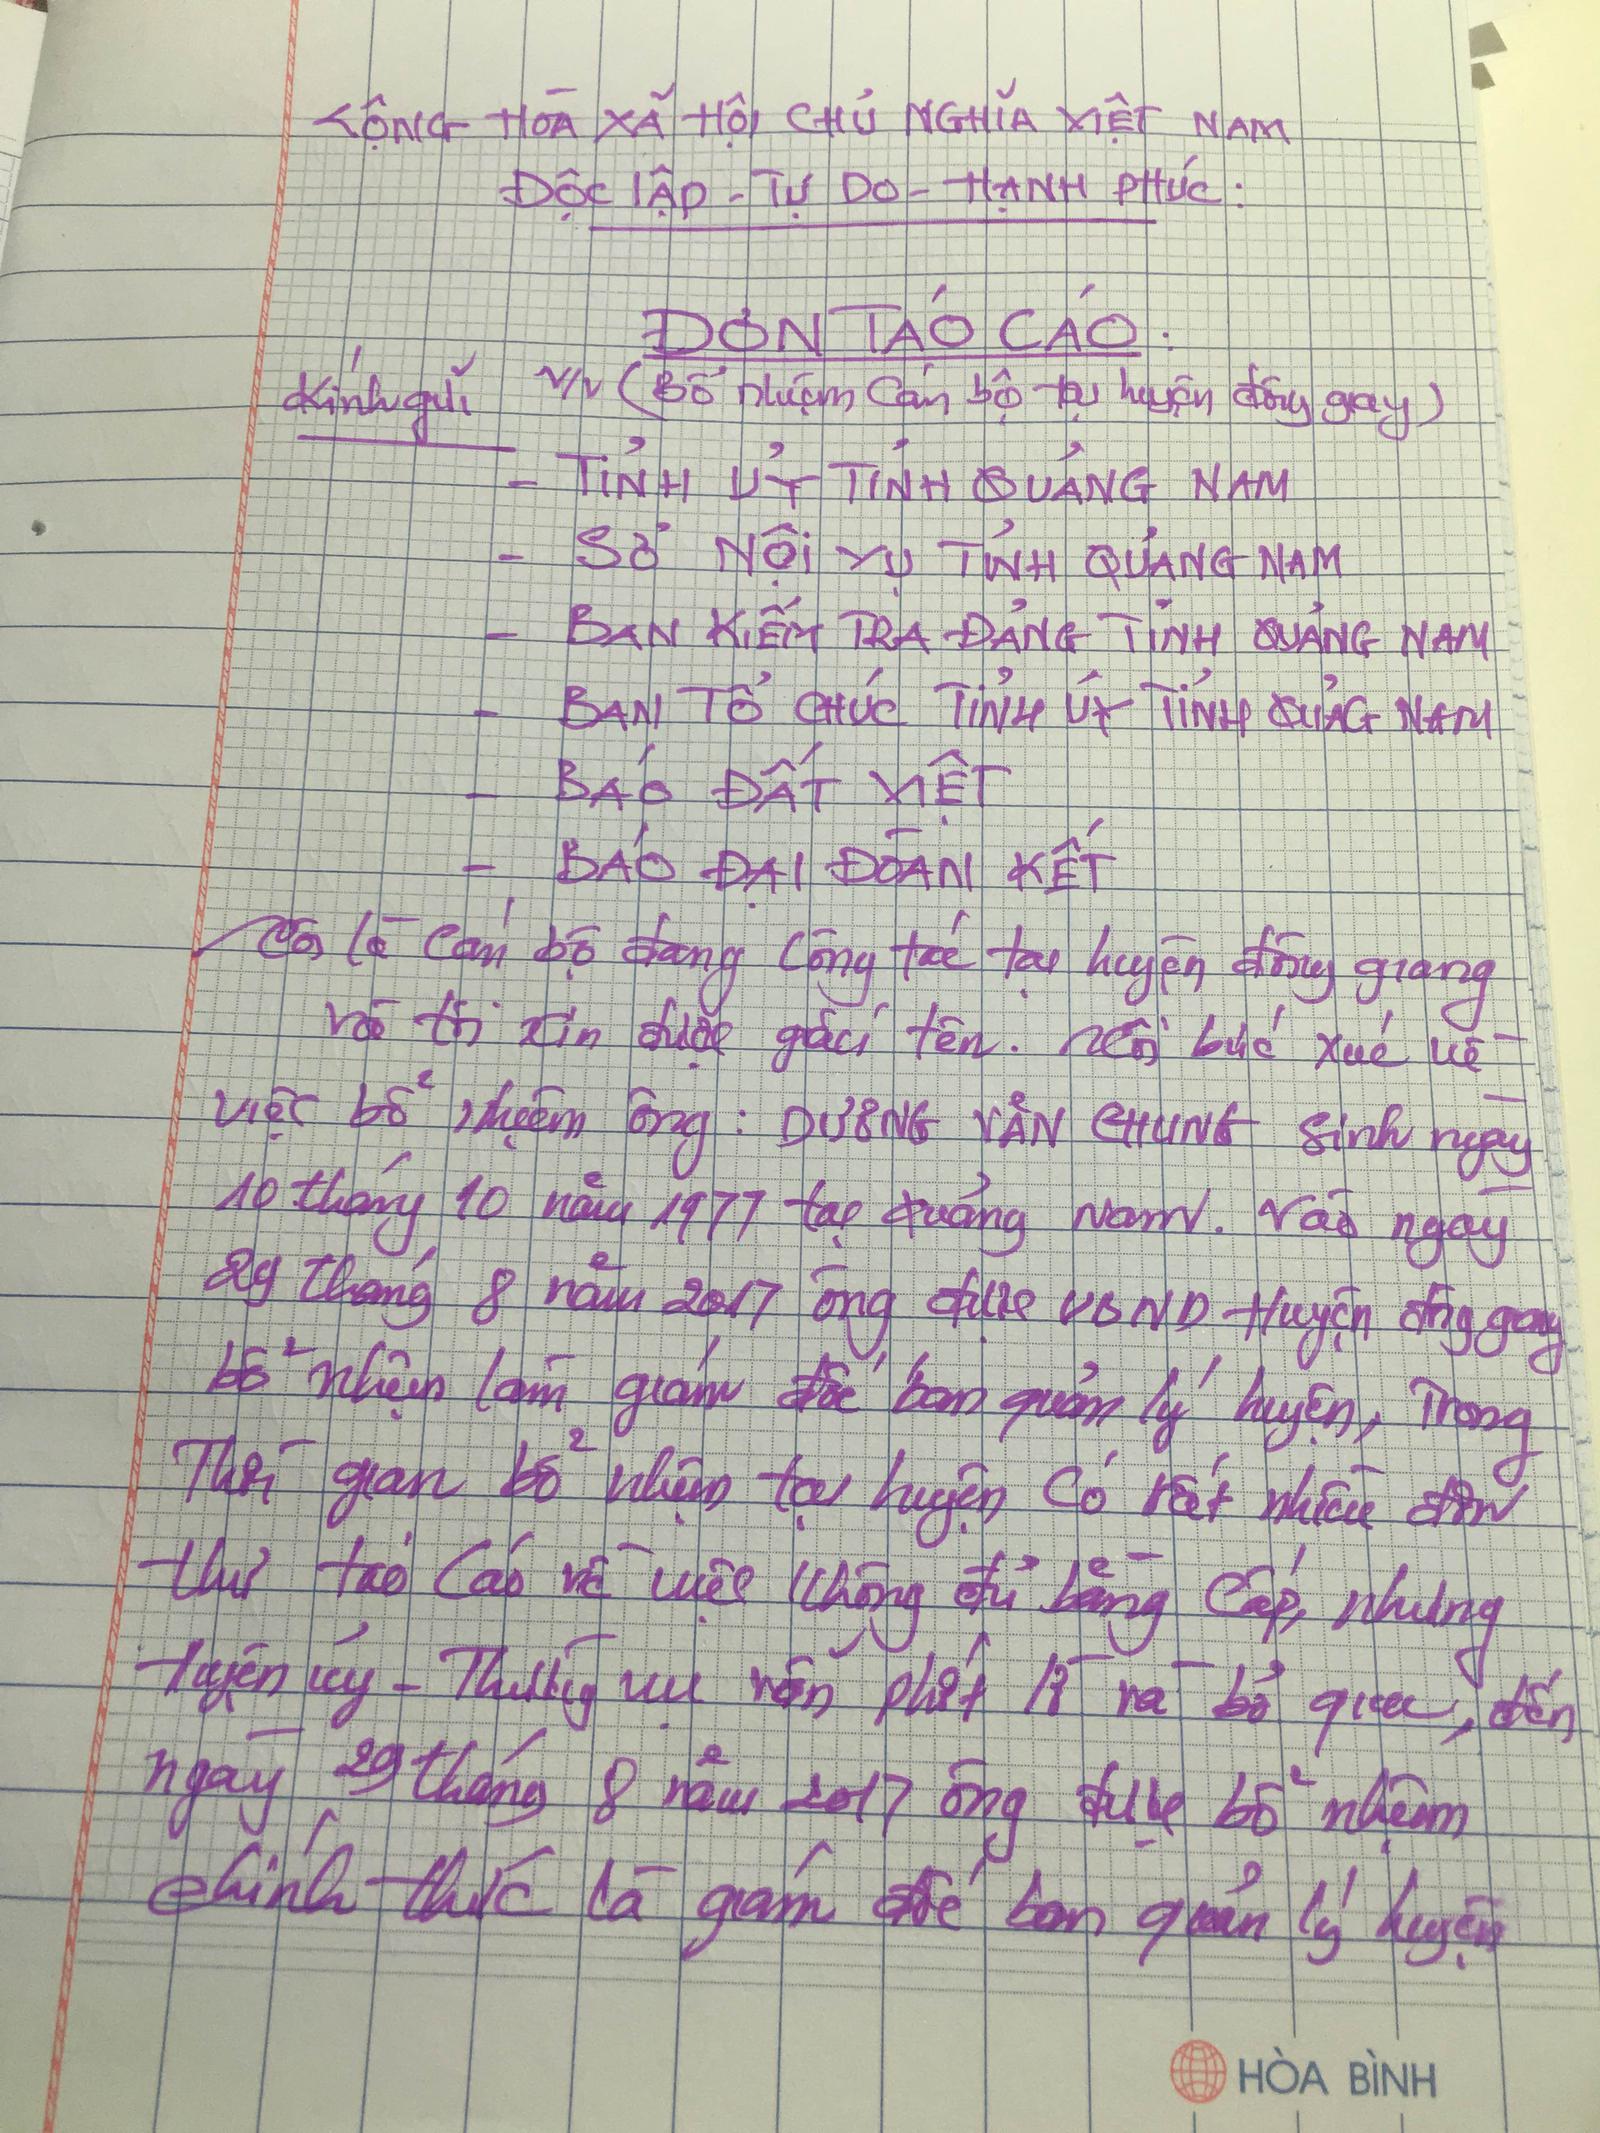 CỘNG HÒA XÃ HỘI CHỦ NGHĨA VIỆT NAM
ĐỘC LẬP - TỰ DO - HẠNH PHÚC:
ĐƠN TÁO CÁO:
Kính gửi V/v (Bổ nhiệm Cán bộ tại huyện đông giang)
- TỈNH ỦY TỈNH QUẢNG NAM
- SỞ NỘI VỤ TỈNH QUẢNG NAM
- BAN KIỂM TRA ĐẢNG TỈNH QUẢNG NAM
- BAN TỔ CHỨC TỈNH ỦY TỈNH QUẢNG NAM
- BÁO ĐẤT VIỆT
- BÁO ĐẠI ĐOÀN KẾT
là Cán bộ đang Công tác tại huyện đông giang
xin được giấu tên. bức xúc về
việc bổ nhiệm ông: DƯƠNG VĂN CHUNG sinh ngày
10 tháng 10 năm 1977 tại Quảng Nam. Vào ngày
29 tháng 8 năm 2017 ông được UBND Huyện đông giang
bổ nhiệm làm giám đốc ban quản lý huyện, Trong
Thời gian bổ nhiệm tại huyện Có rất nhiều đơn
thư táo Cáo về việc không đủ bằng Cấp, nhưng
huyện ủy - Thường vụ vẫn phớt lờ và bỏ qua, đến
ngày 29 tháng 8 năm 2017 ông được bổ nhiệm
chính thức là giám đốc ban quản lý huyện
HÒA BÌNH